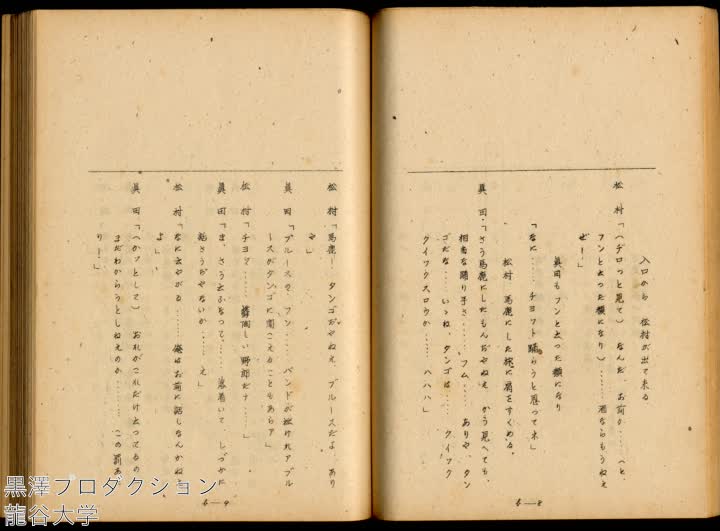 入口から 松村が出て来る
松村「(ヂロッと見て) なんだ、お前か…… (と、
フンと云った顔になり)…… 酒ならもうねえ
ぜ!」
眞田もフンと云った顔になり
「なに…… チョット踊らうと思って来」
松村、馬鹿にした様に肩をすくめる。
眞田「さう馬鹿にしたもんぢやねえ かう見へても、
相当な踊り手さ…… フム…… ありや、タン
ゴだな… いゝね、タンゴは…… クイック
クイックスロウか…… ヘハハ」
6—8
松村「馬鹿!… タンゴぢやねえ ブルースだよ あり
や」
眞田「ブルースで、フン…… バンドが泣けれアブル
ースがタンゴに聞こえることもあらァ」
松村「チョッ…… しい野郎だナ……」
眞田「ま、さう云ふなって…… 落着いて、しづかに
話さうぢやないか…… え」
松村「なに云やがる…… 俺はお前に話しなんかねえ
よ」
眞田「(カッとして) おれがこれだけ云ってるの
まだわからうとしねえのか…… この罰あ
り!」
6—9
黒澤プロダクション
龍谷大学